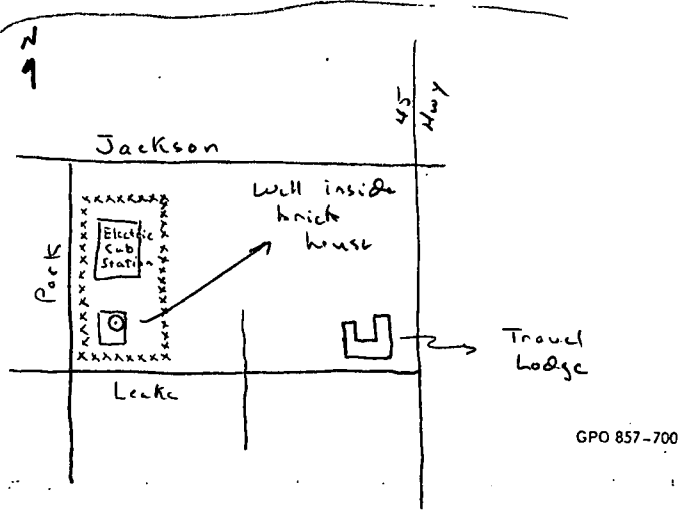 N
45
Hwy
Jackson
Well inside
brick
house
Electric
Sub
Station
Park
Travel
Lodge
Leake
GPO 857-700